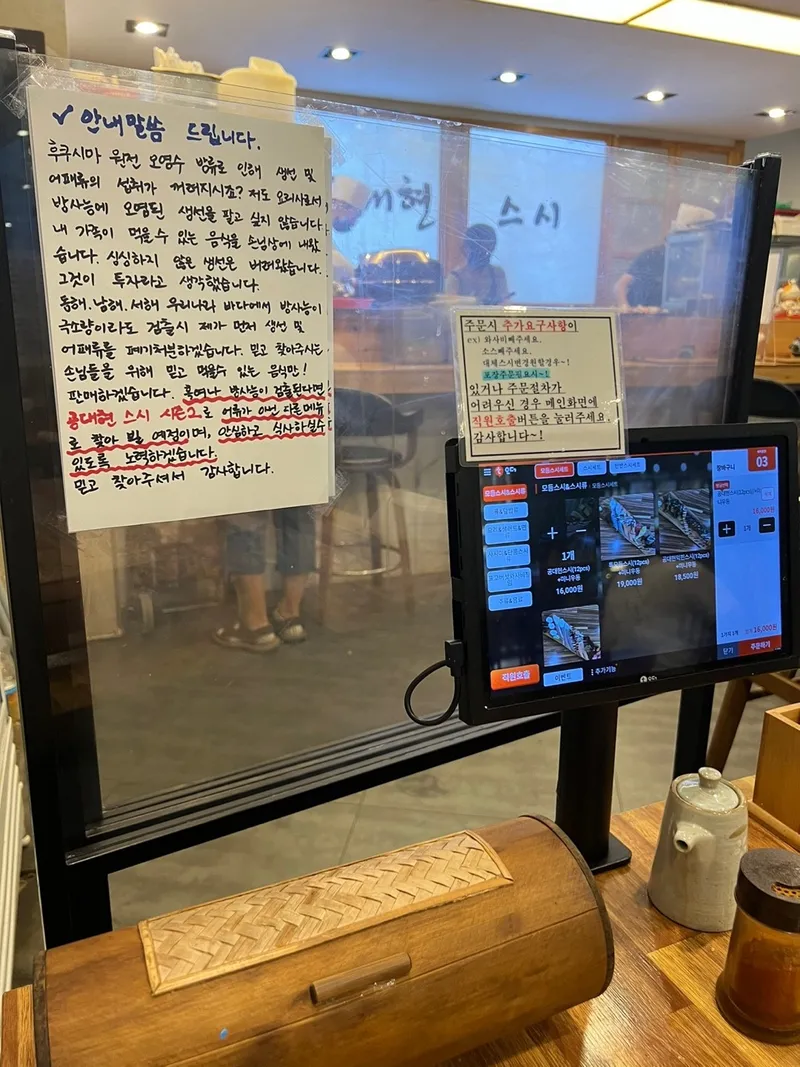 ✓ 안내말씀 드립니다.
후쿠시마 원전 오염수 방류로 인해 생선 및
어패류의 섭취가 꺼려지시죠? 저도 요리사로서,
방사능에 오염된 생선을 팔고 싶지 않습니다
내 가족이 먹을수 있는 음식을 손님상에 내왔
습니다. 싱싱하지 않은 생선은 버려왔습니다.
그것이 투자라고 생각했습니다.
동해.남해.서해 우리나라 바다에서 방사능이
극소량이라도 검출시 제가 먼저 생선 및
어패류를 폐기처분하겠습니다. 믿고 찾아주시는
손님들을 위해 믿고 먹을수 있는 음식만!
판매하겠습니다. 혹여나 방사능이 검출된다면
공대현 스시 시즌2로 어류가 아닌 다른메뉴
로 찾아 뵐 예정이며, 안심하고 식사하실수
있도록 노력하겠습니다.
믿고 찾아주셔서 감사합니다.
대현 스시
주문시 추가요구사항이
ex) 와사비빼주세요.
소스빼주세요.
대체스시변경원할경우~!
포장주문필요시~!
있거나 주문절차가
어려우신 경우 메인화면에
직원호출버튼을 눌러주세요.
감사합니다~!
모듬스시세트
스시세트
장바구니
03
모듬스시&스시류
모듬스시&스시류 : 모듬스시세트
+ −
1개
공대현스시(12pcs)
+미니우동
16,000원
(12pcs)
+미니우동
19,000원
(12pcs)
+미니우동
18,500원
16,000원
+ 1개 −
16,000원
닫기
주문하기
직원호출
이벤트
추가기능